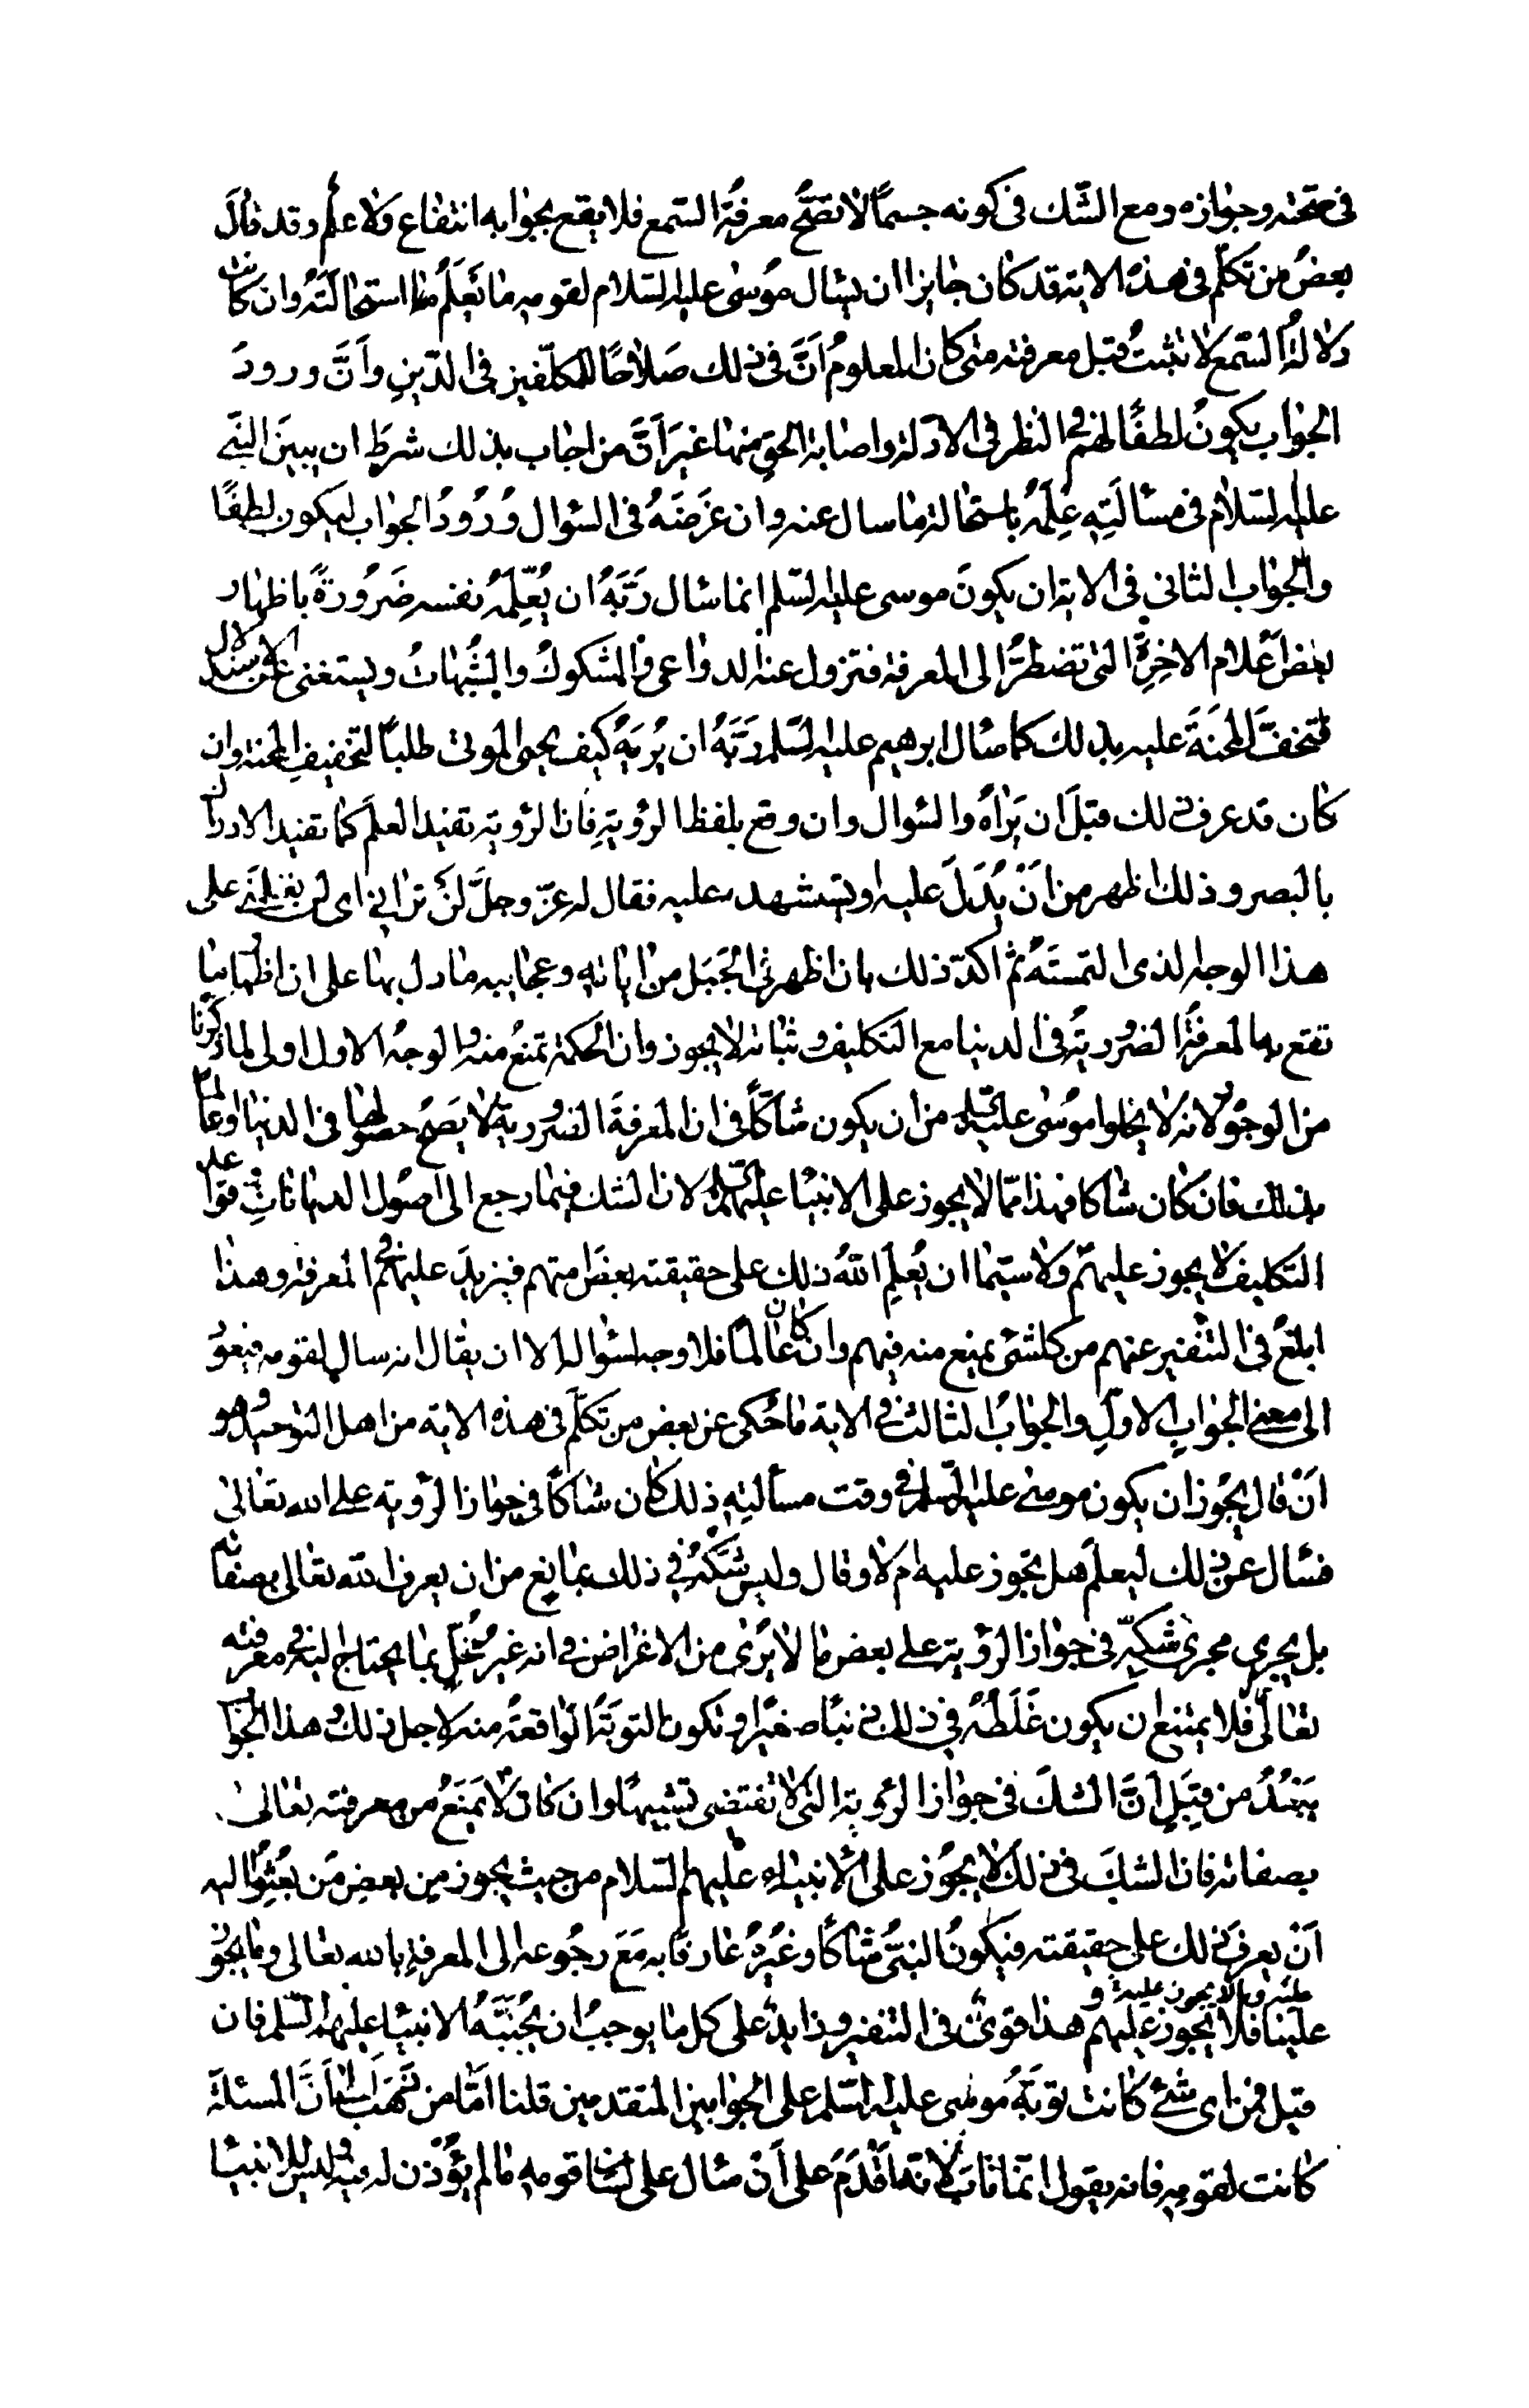 في صحّته وجوازه ومع الشّك في كونه جسمًا لا تصَحُّ معرفةُ السّمع فلا يقع بجوابه انتفاع ولا علم وقد قالَ
بعضُ من تكلّم في هذه الاية قد كان جايزا ان يسال مُوسى عليه السّلام لقومه ما يَعلَمُ استحالَتَهُ وان كانت
دلالةُ السّمع لا تثبتُ قبل معرفته متى كان المعلومُ اَنَّ في ذلك صَلاحًا للمكلّفين في الدّينِ واَنَّ ورودَ
الجواب يكونُ لطفًا لهم في النظر في الادلة واصابة الحق منها غيرَ اَنَّ من اجاب بذلك شرطَ ان يبيّنَ النبّي
عليه السّلام في مسألَتِهِ عِلمَهُ باستحالة ما سال عنه وان غرَضَهُ في السّوال وُرُودُ الجواب ليكون لطفًا
والجواب الثاني في الاية ان يكونَ موسى عليه السّلم انما سال رَبَّهُ ان يُعلِّمَهُ نفسه ضَرُورةً باظهار
بعض اَعلام الاخرةِ التي تضطرُّ الى المعرفة فتزول عنه الدواعي والشكوكُ والشُّبهاتُ ويستغنى عن الاستدلال
فتخفَّ المحنَةَ عليه بذلك كما سال ابرهيم عليه السّلم ربَّهُ ان يُرِيَهُ كيف يحيى الموتى طلبًا لتخفيفِ المحنة وان
كان قد عرف ذلك قبلَ ان يَراهُ والسّوال وان وقع بلفظ الرؤيةِ فان الرؤية تفيد العلمَ كما تفيد الادراك
بالبصر وذلك اظهر من اَنْ يُدَلَّ عليه او يستشهد عليه فقال له عزّ وجلَّ لَنْ تراني اى لن تعلمَني على
هذا الوجه الذي التمستَهُ ثم اكدّ ذلك بان اظهر في الجَبَل من اياتهِ وعجايبه ما دل بها على ان اظهار ما
تقع به المعرفةُ الضروريّةُ في الدنيا مع التكليف وبثباته لا يجوز وان الحكمة تمنعُ منه والوجهُ الاول اولى لما ذكرنا
من الوجوه لانه لا يخلوا موُسى عليه السّلم من ان يكون شاكًّا في ان المعرفةَ الضروريّة لا يصَحُ حصولها في الدنيا او عالما
بذلك فان كان شاكا فهذا ممّا لا يجوز على الانبيا عليهم السّلم لان الشك فيما رجع الى اصُول الديانات وقواعد
التكليف لا يجوز عليهم ولا سيّما ان يَعلم اللهُ ذلك على حقيقته بعضُ امتهم فيزيدَ عليهم في المعرفة وهذا
ابلغُ في التنفير عنهم من كلّ شئ يمنع منه فيهم وان كان عالمًا فلا وجه لسواله الا ان يقال انه سال لقومه فيعُودُ
الى معنى الجوابِ الاولِ والجوابُ الثالث في الاية ما حُكى عن بعض من تكلّم في هذه الاية من اهل التوحيد وهو
اَنْ قال يجُوز ان يكون موسى عليه السّلم في وقت مسألتهِ ذلك كان شاكًّا في جواز الرّؤية على الله تعالى
فسال عن ذلك ليعلَم هل يجوز عليه ام لا وقال وليس شكّهُ في ذلك بمانِعٍ من ان يعرف الله تعالى بصفاته
بل يجرى مجرى شكّهِ في جواز الرؤية على بعض ما لا يُرى من الاعراض في انه غيرُ مُخلٍّ بما يحتاج اليه في معرفته
تعالى فلا يمتنع ان يكون غَلَطُهُ في ذلك ذنبًا صغيرًا وتكون التوبَةُ الواقعةُ منه لاجل ذلك وهذا الجوَاب
يَبعُدُ من قِبَلِ اَنَّ الشكَّ في جواز الرؤية التي لا تقتضى تشبيهًا وان كان لا يَمنَعُ من معرفته تعالى
بصفاته فان الشكَّ في ذلك لا يجُوز على الانبياءِ عليهم السّلام من حيث يجوز من بعضِ مَن بُعثُوا اليه
اَنْ يعرف ذلك على حقيقته فيكونُ النبّيُ شاكًّا وغيرُهُ عارفًا به مَعَ رجُوعه الى المعرفةِ بالله تعالى وما يجوز
عليه وما لا يجوز عليه و
علينا فلا يجوز عليهم هذا قوىٌّ في التنفير وزايدٌ على كل ما يوجبُ ان يُجَنَّبَهُ الانبيا عليهم السّلم فان
قيل فمن اى شئ كانت توبَةُ موسى عليه السّلم على الجوابين المتقدمين قلنا امّا من ذهَب الى اَنَّ المسئلةَ
كانت لقومهِ فانه يقول انّما تابَ لانّه اَقدَمَ على اَنْ سال على لسان قومهِ ما لم يُؤذن له فيه وليس للانبيا